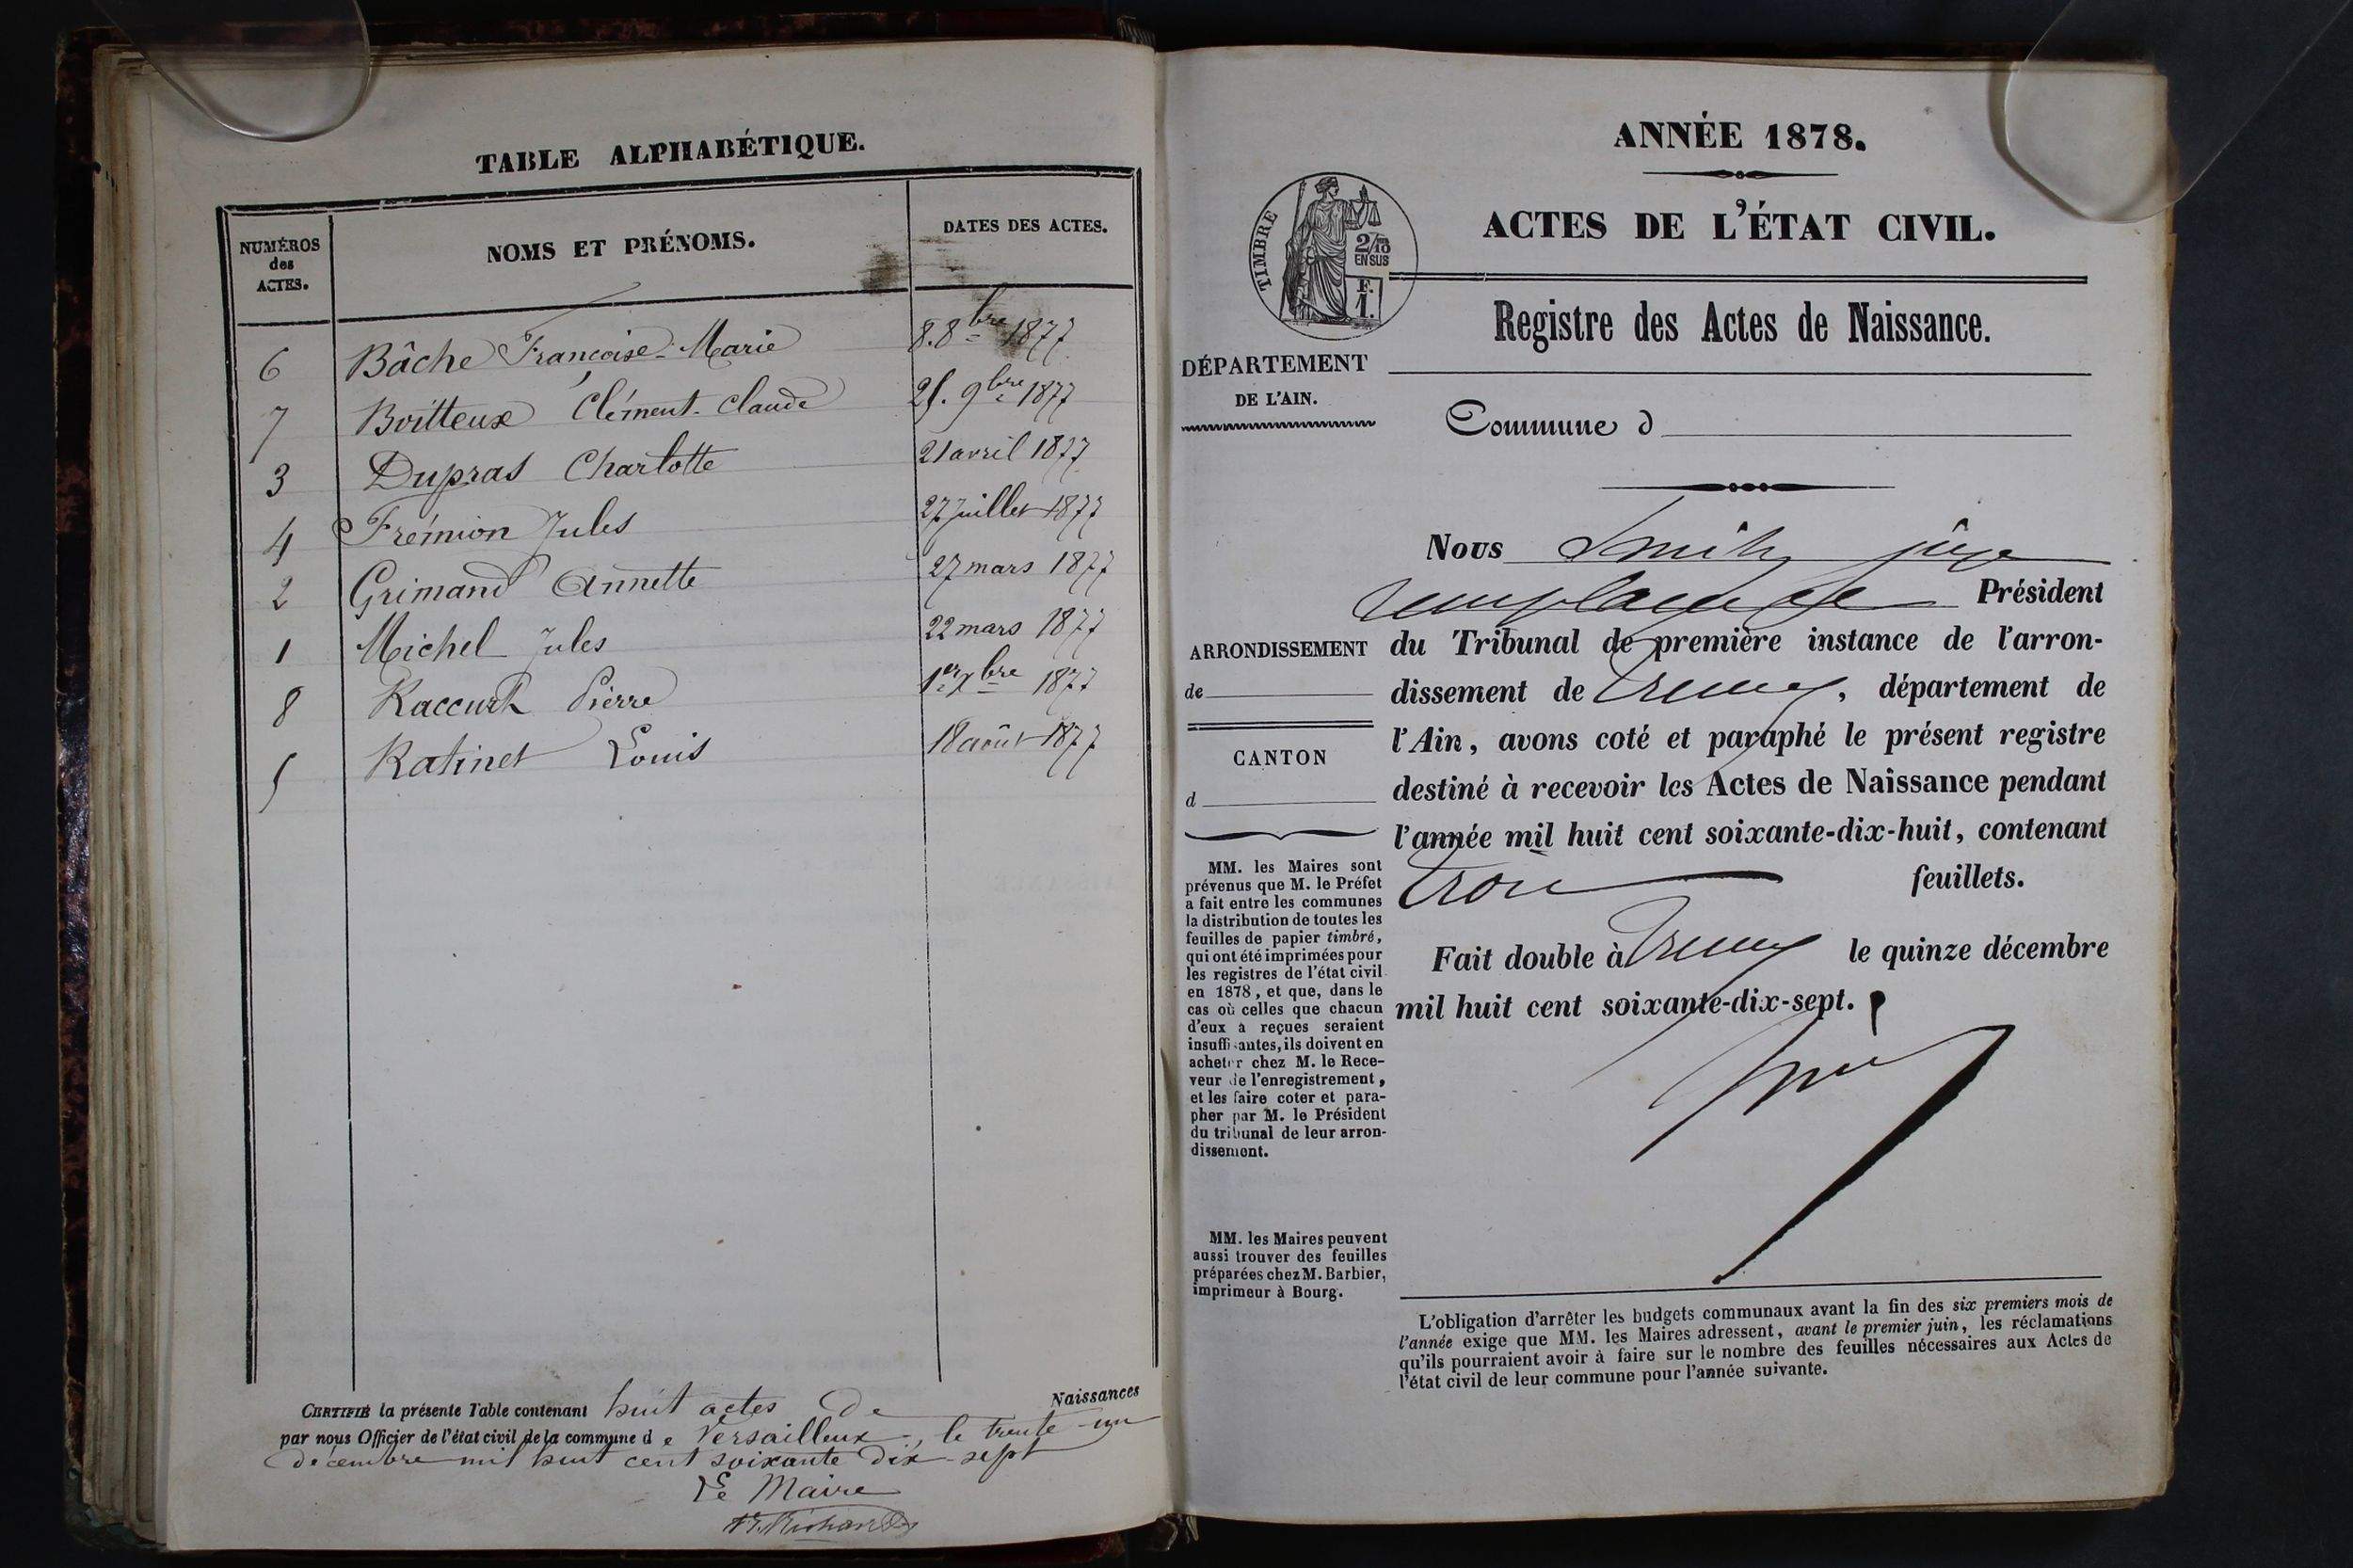 TABLE ALPHABÉTIQUE.
NUMÉROS des ACTES. NOMS ET PRÉNOMS. DATES DES ACTES.
6 Bâche Françoise-Marie 8. 8bre 1877
7 Boitteux Clément-Claude 25. 9bre 1877
3 Dupras Charlotte 21 avril 1877
4 Frémion Jules 27 Juillet 1877
2 Grimand Annette 27 mars 1877
1 Michel Jules 22 mars 1877
8 Raccurt Pierre 1er Xbre 1877
5 Ratinet Louis 18 août 1877
CERTIFIÉ la présente Table contenant huit actes de Naissances
par nous Officier de l'état civil de la commune de Versailleux, le trente-un
décembre mil huit cent soixante dix-sept
Le Maire
ANNÉE 1878.
ACTES DE L'ÉTAT CIVIL.
TIMBRE
2/10
EN SUS
F.
1.
Registre des Actes de Naissance.
DÉPARTEMENT
DE L'AIN.
Commune d
Nous Smith juge
remplaçant le Président
du Tribunal de première instance de l'arron-
dissement de Trévoux, département de
l'Ain, avons coté et paraphé le présent registre
destiné à recevoir les Actes de Naissance pendant
l'année mil huit cent soixante-dix-huit, contenant
trois feuillets.
Fait double à Trévoux le quinze décembre
mil huit cent soixante-dix-sept.
ARRONDISSEMENT
de
CANTON
d
MM. les Maires sont
prévenus que M. le Préfet
a fait entre les communes
la distribution de toutes les
feuilles de papier timbré,
qui ont été imprimées pour
les registres de l'état civil
en 1878, et que, dans le
cas où celles que chacun
d'eux a reçues seraient
insuffisantes, ils doivent en
acheter chez M. le Rece-
veur de l'enregistrement,
et les faire coter et para-
pher par M. le Président
du tribunal de leur arron-
dissement.
MM. les Maires peuvent
aussi trouver des feuilles
préparées chez M. Barbier,
imprimeur à Bourg.
L'obligation d'arrêter les budgets communaux avant la fin des six premiers mois de
l'année exige que MM. les Maires adressent, avant le premier juin, les réclamations
qu'ils pourraient avoir à faire sur le nombre des feuilles nécessaires aux Actes de
l'état civil de leur commune pour l'année suivante.